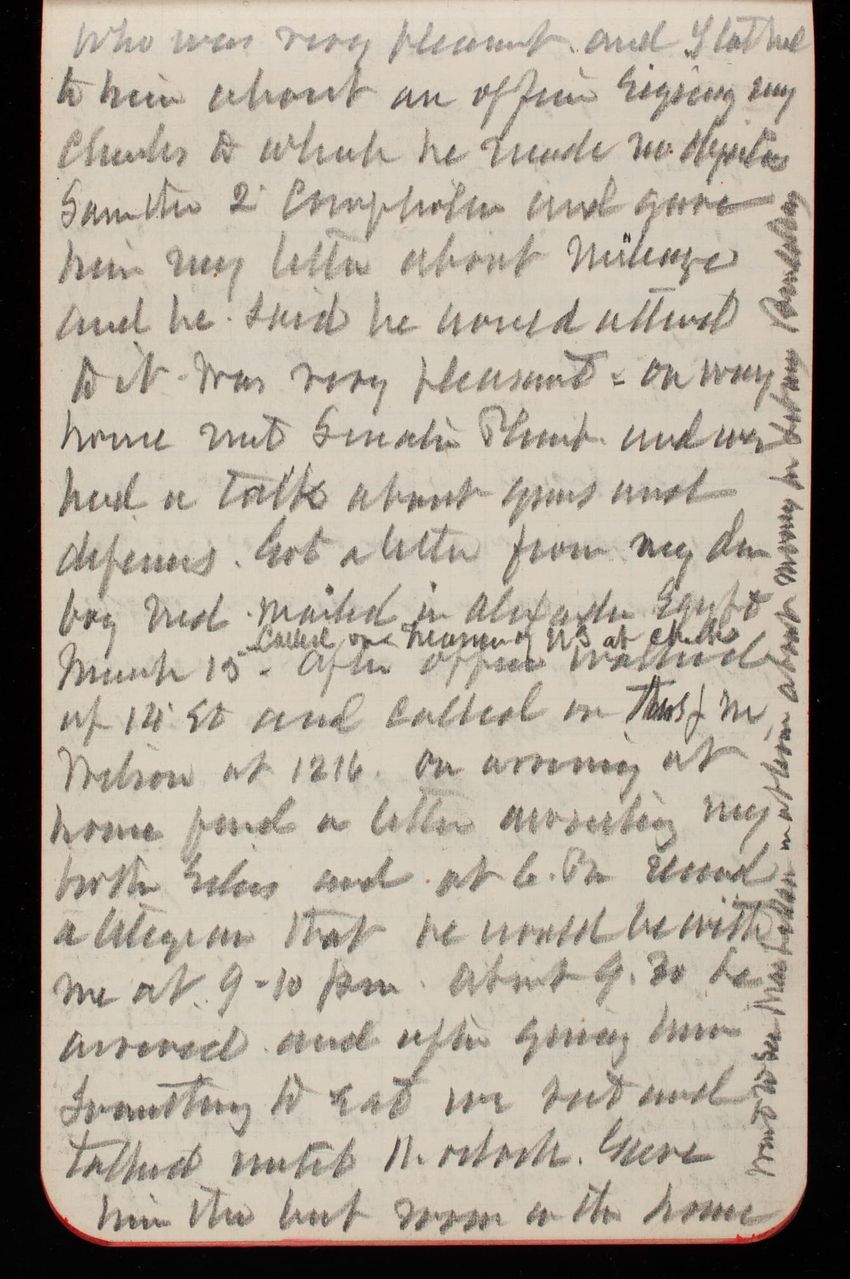 who was very pleasant and I talked
to him about an officer signing my
checks to which he made no objection
Saw the 2d Comptroller and gave
him my letter about Mileage
and he said he would attend
to it. Was very pleasant - on way
home met Senator Plumb and we
had a talk about guns and
defenses. Got a letter from my dear
boy Ned mailed in Alexander Egypt
Called on Treasurer of US at
March 15 - After office walked
up 14 St and called on Thos J M,
Wilson at 1216. On arriving at
home find a letter my
brother and at 6. Pm received
a telegram that he would be with
me at 9-10 pm. about 9.30 he
arrived and after giving him
something to eat we sat and
talked until 11. oclock. Gave
him the best room in the house
Went to see at about money for